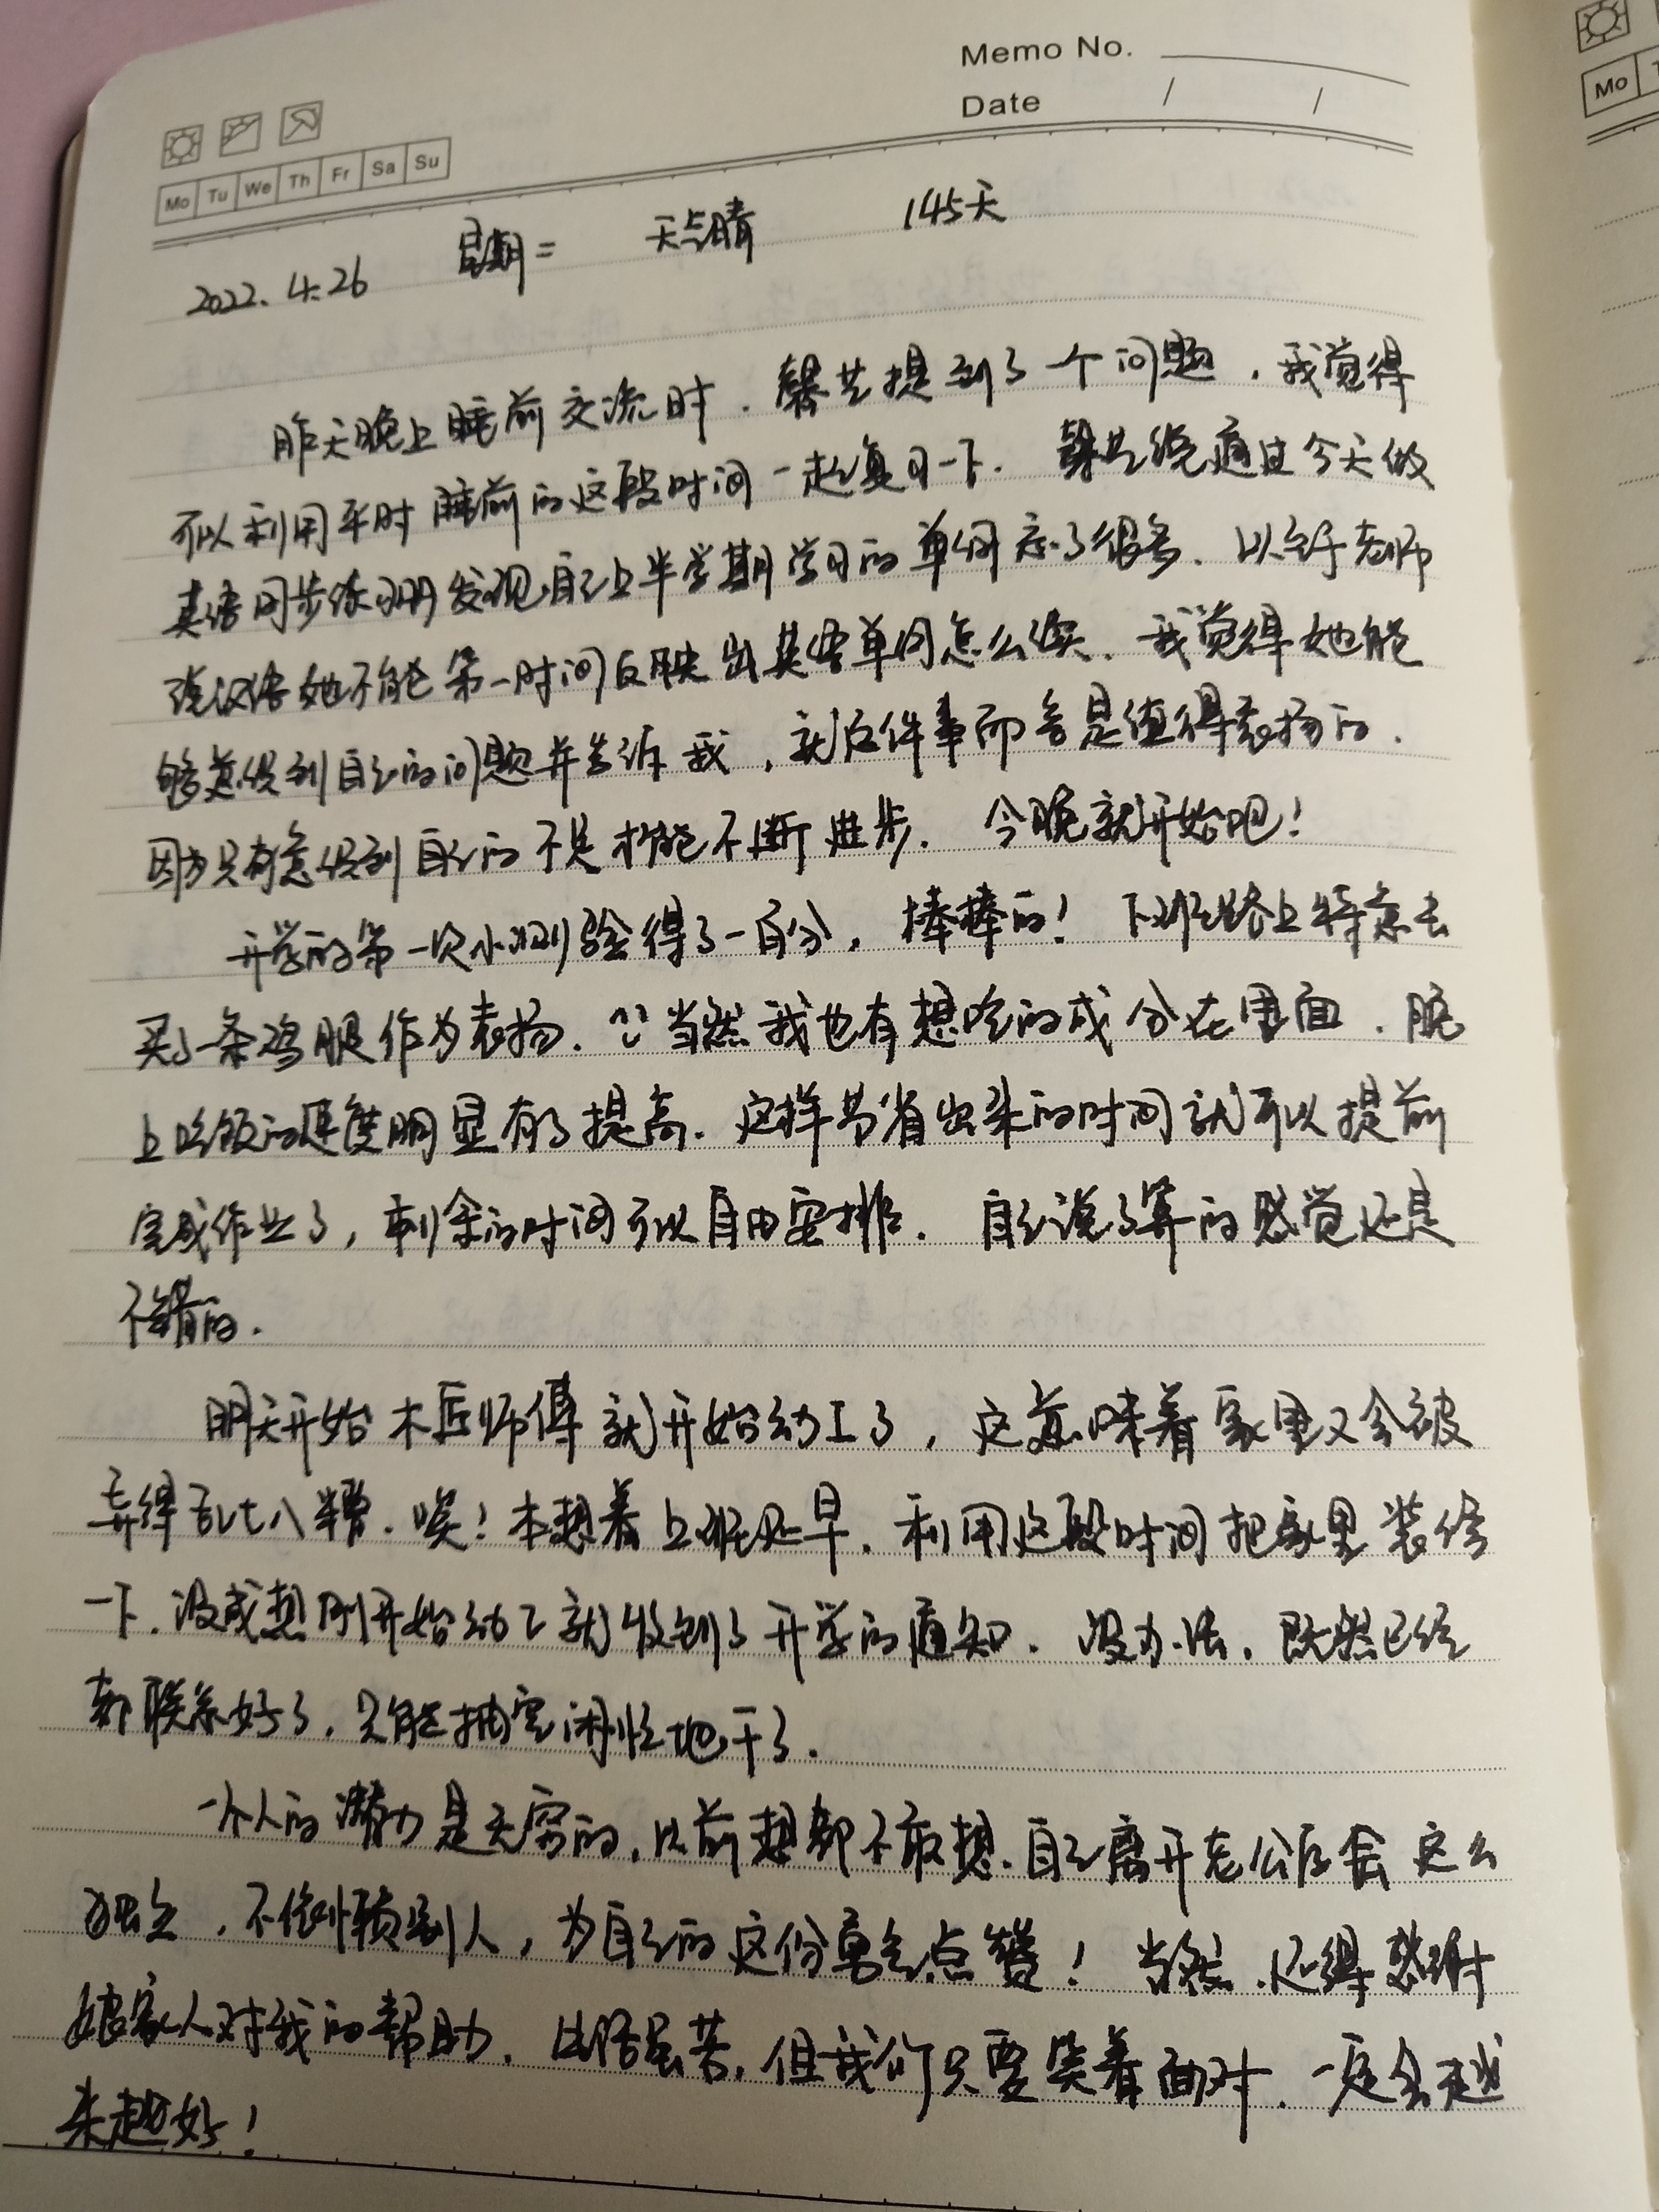 Memo No.
Date / /
Mo Tu We Th Fr Sa Su
Mo
2022.4.26 星期二 天气晴 145天
昨天晚上睡前交流时，馨艺提到了一个问题，我觉得
可以利用平时睡前的这段时间一起复习一下．馨艺说通过今天做
英语同步练习册发现自己上半学期学习的单词忘了很多、以至于老师
说汉语她不能第一时间反映出英语单词怎么读、我觉得她能
够意识到自己的问题并告诉我，就这件事而言是值得表扬的．
因为只有意识到自己的不足才能不断进步．今晚就开始吧！
开学的第一次小测验得了一百分，棒棒的！下班路上特意去
买了一条鸡腿作为表扬．当然我也有想吃的成分在里面．晚
上吃饭的速度明显有了提高．这样节省出来的时间就可以提前
完成作业了，剩余的时间可以自由安排．自己说了算的感觉还是
不错的．
明天开始木匠师傅就开始动工了，这意味着家里又会被
弄得乱七八糟．唉！本想着上班还早．利用这段时间把家里装修
一下．没成想刚开始动工就收到了开学的通知．没办法．既然已经
都联系好了，只能抽空闲忙地干了．
一个人的潜力是无穷的，以前想都不敢想．自己离开老公后会这么
独立，不依赖别人，为自己的这份勇气点赞！当然．还得感谢
娘家人对我的帮助．生活虽苦，但我们只要笑着面对．一定会越
来越好！